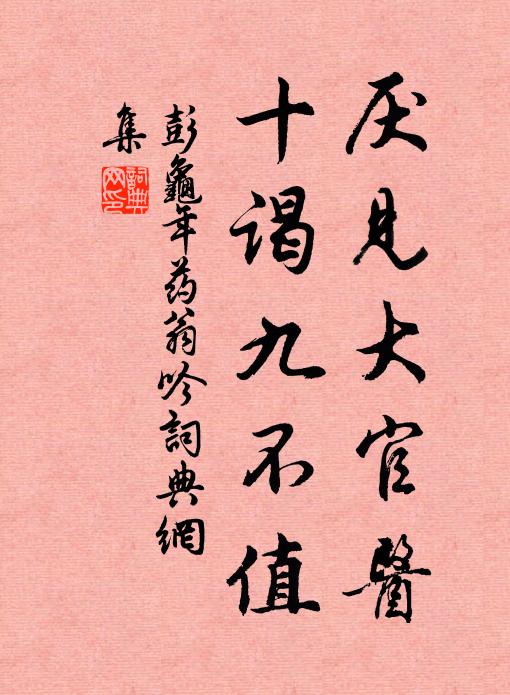 厌见大官醫
十谒九不值
彭龜年药翁吟詞典網
集
詞典
网印